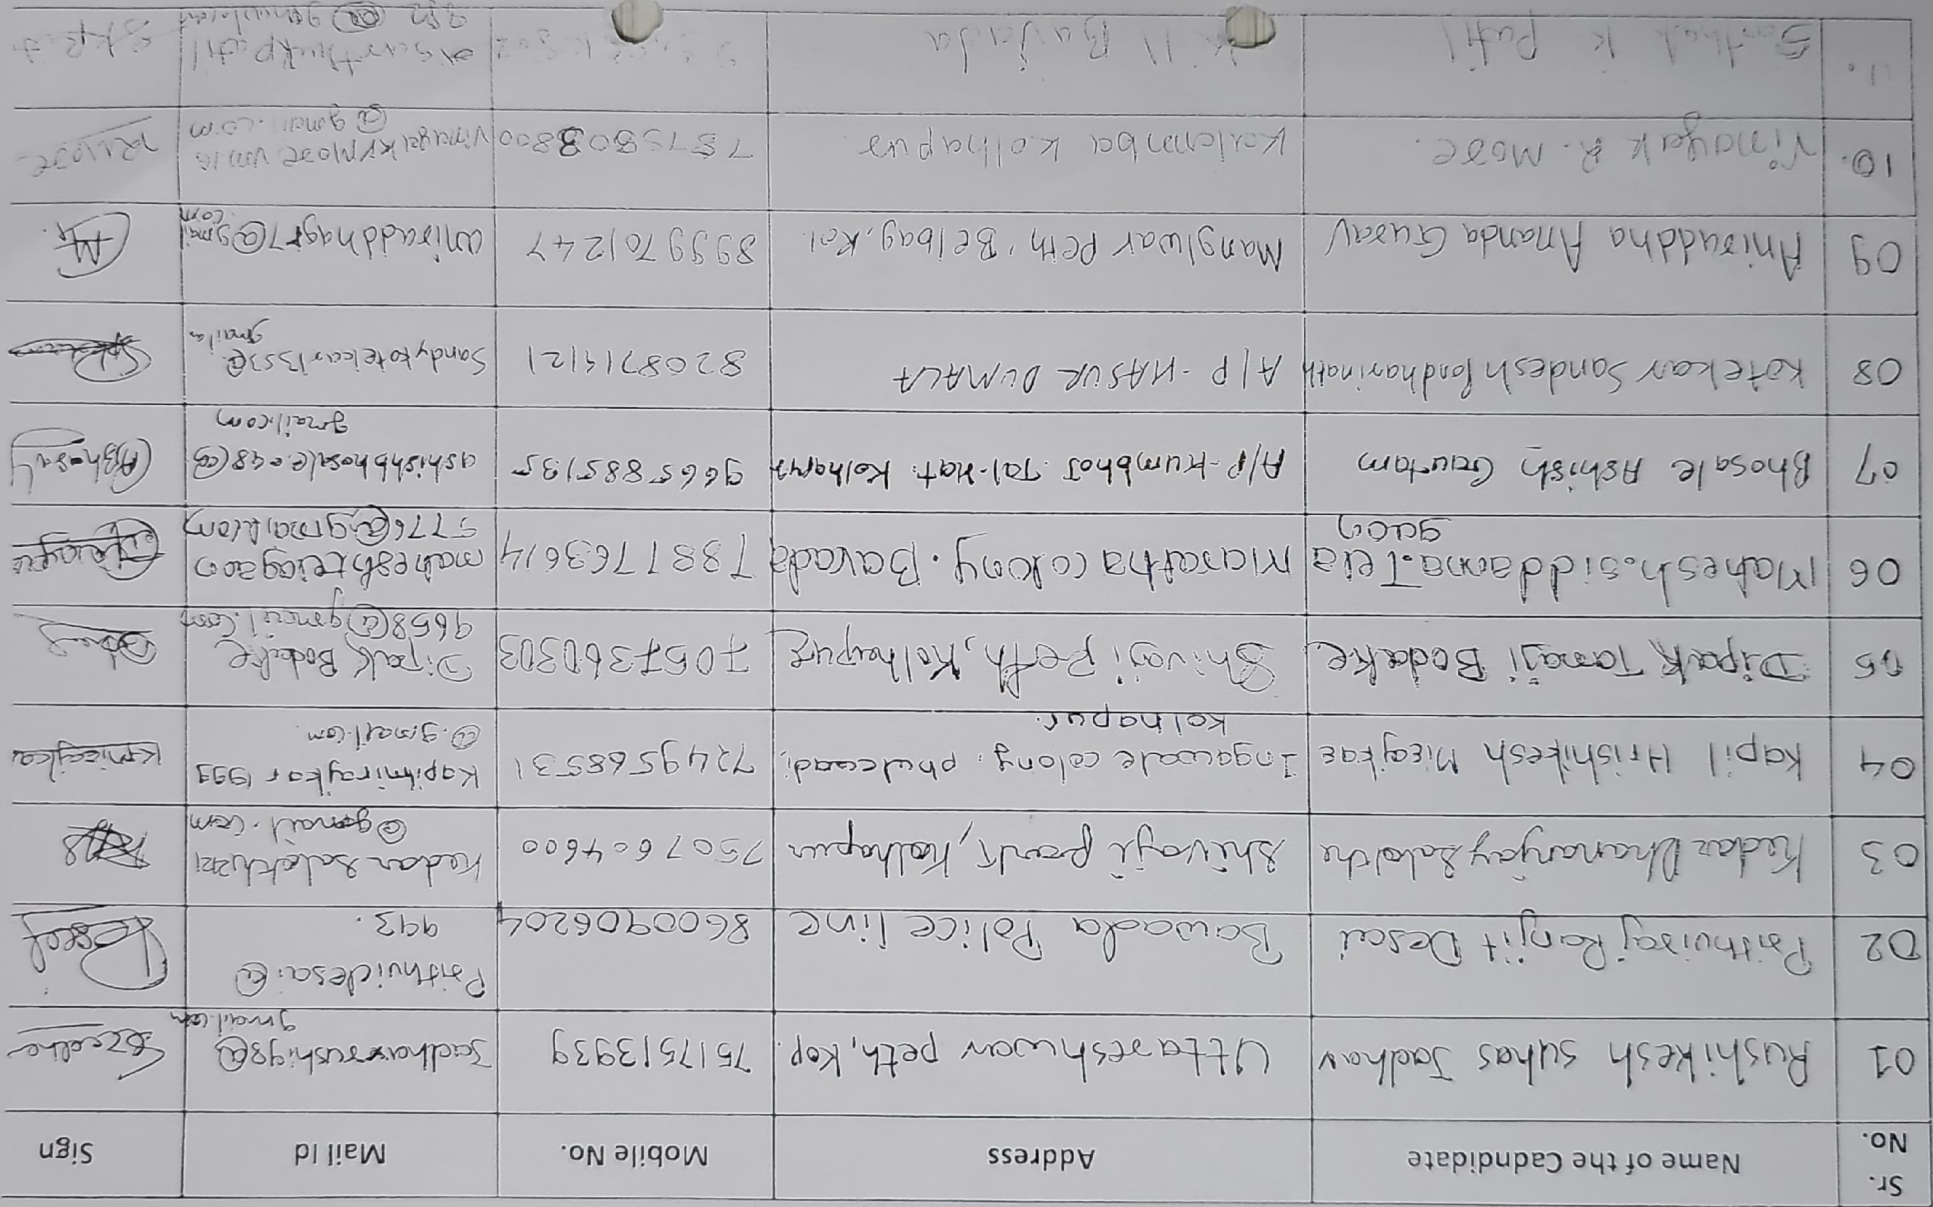 Sr. No. Name of the Cadndidate Address Mobile No. Mail Id Sign
01 Rushikesh suhas Jadhav Uttareshwar peth, Kop. 7517513939 Jadhavrushi98@
gmail.com
02 Prithviraj Ranjit Desai Bawada Police line 8600906204 Prithvidesai@
993.
03 Kedar Dhananjay Salokhe Shivaji park, Kolhapur 7507604600
@gmail.com
04 Kapil Hrishikesh Mirajkar Ingawale colony, phulewadi, 7249568531 Kapilmirajkar1999
Kolhapur. @.gmail.com
05 Dipak Tanaji Bodake Shivaji Peth, Kolhapur 7057360303 Dipak Bodake
9658@gmail.com
06 Mahesh.siddanna.Tela Maratha colony. Bavada 7387763614 maheshtelagaon
gaon 5776@gmail.com
07 Bhosale Ashish Gautam A/P-Kumbhoj Tal-Hat. Kolhapur 9665885135 ashishbhosale098@
gmail.com
08 Kotekar Sandesh Pandharinath A/P - HASUR DUMALA 8208714121 Sandykotekar1353@
gmail.
09 Aniruddha Ananda Gurav Manglwar Peth, Belbag, Kol. 8999701247 aniruddhagr7@gmail
com
10. Vinayak R. More. Kalamba Kolhapur
@gmail.com
11. Sarthak K Patil Bavada
@gmail.com